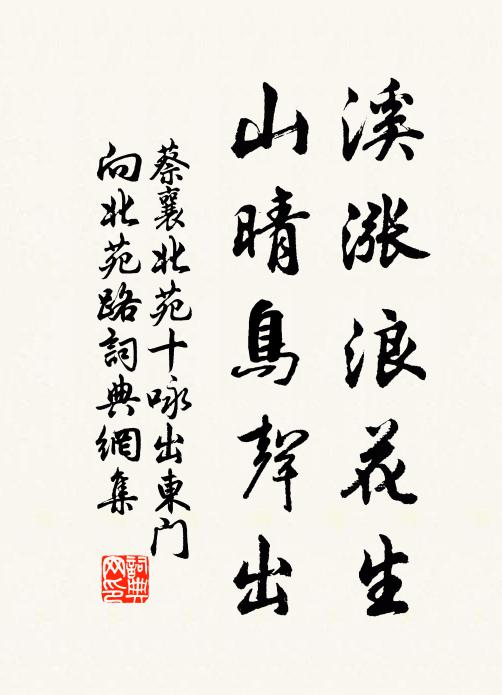 溪漲浪花生
山晴鳥聲出
蔡襄北苑十咏出東門
向北苑路詞典網集
詞典
网印